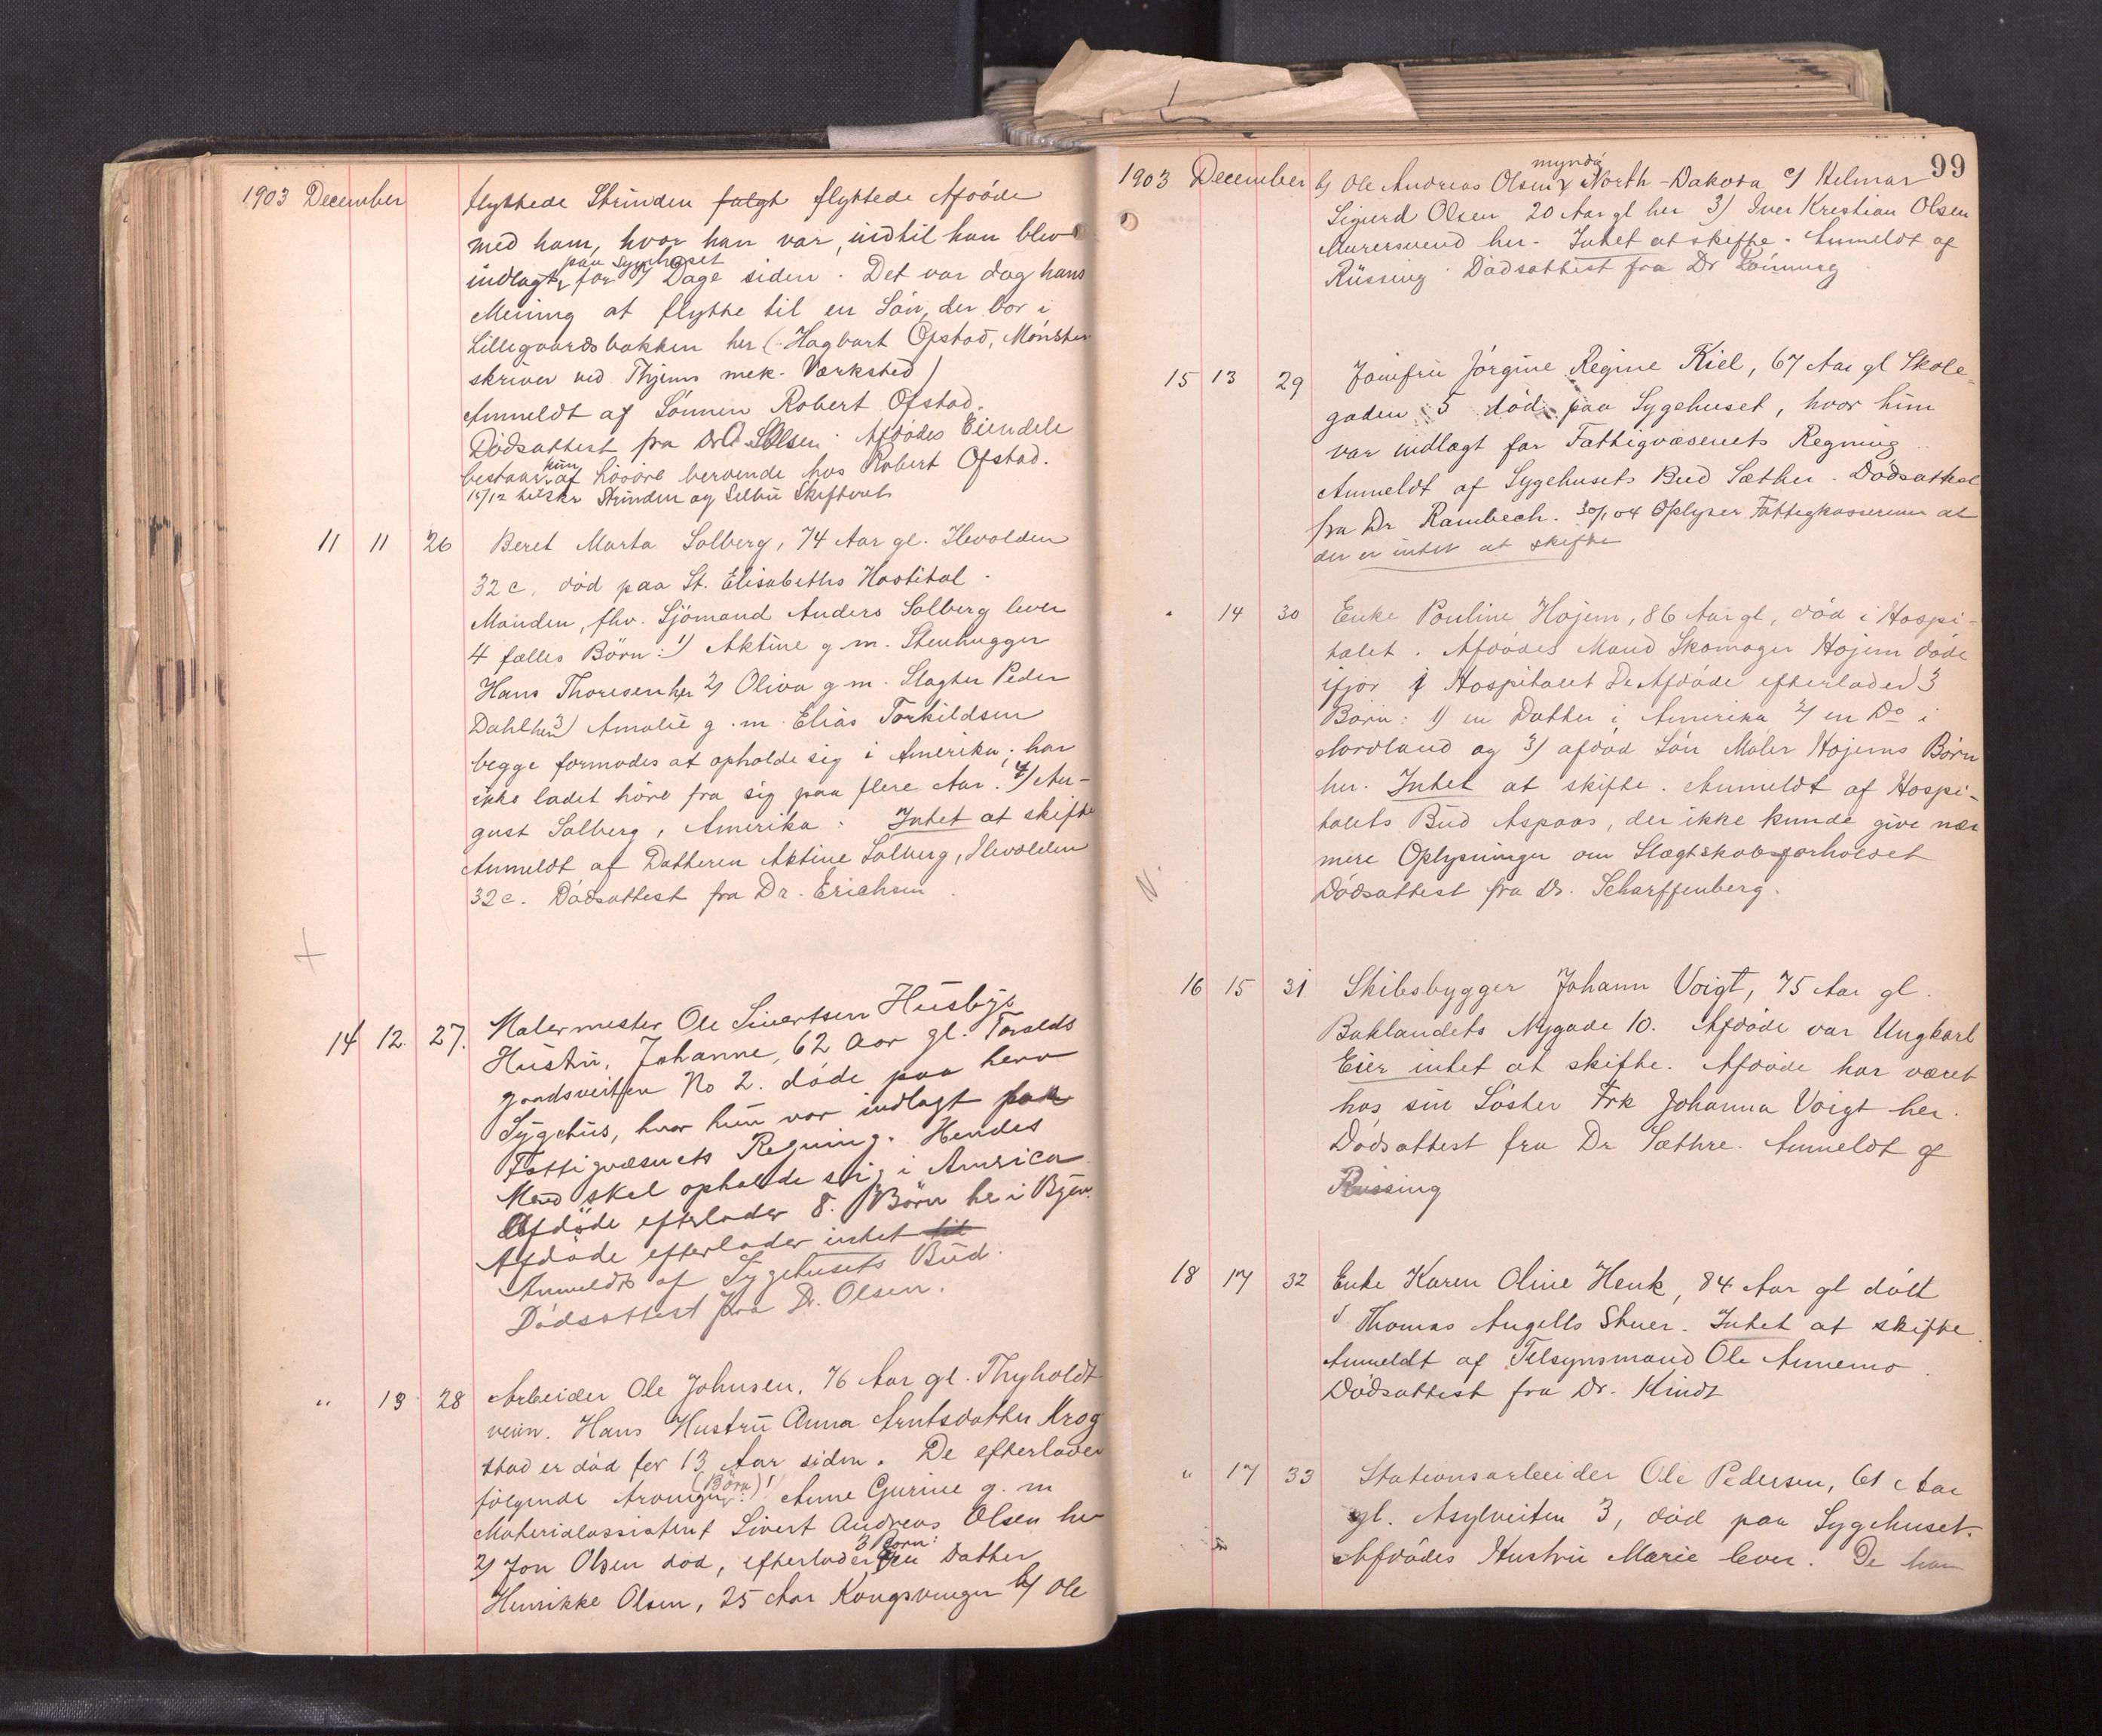 1903 December
flyttede Strinden fulgt flyttede Afdöde
med ham, hvor han var, indtil han blev
paa Sygehuset
indlagt for 7 Dage siden. Det var dog hans
Mening at flytte til en Sön, der bor i
Lillegaardsbakken her (Hagbart Opstad, Mönster
skriver ved Thjems mek. Værksted)
Anmeldt af Sönnen Robert Ofstad.
Dödsattest fra Dr Olsen. Afdödes Eiendele
kun
bestaar af Lösöre beroende hos Robert Ofstad.
15/12 tilskr Strinden og Selbu Skifteret
11 11 26 Beret Marta Solberg, 74 Aar gl. Ilevolden
32 c, död paa St. Elisabeths Hostital.
Manden, fhv. Sjömand Anders Solberg lever
4 fælles Börn: 1) Aktine g. m. Stenhugger
Hans Thoresen her 2) Oliva g m. Slagter Peder
Dahl her 3) Amalie g. m. Elias Torkildsen
begge formodes at opholde sig i Amerika, har
ikke ladet höre fra sig paa flere Aar. 4) Au-
gust Solberg, Amerika. Intet at skifte
Anmeldt af Datteren Aktine Solberg, Ilevolden
32 c. Dödsattest fra Dr. Erichsen.
14 12. 27. Malermester Ole Sivertsen Husbys
Hustru, Johanne, 62 Aar gl. Taralds
gaardsveiten No 2. döde paa herv
Sygehus, hvor hun var indlagt paa
Fattigvæsenets Regning. Hendes
Mand skal opholde sig i America
Afdöde efterlader 8. Börn her i Byen.
Afdöde efterlader intet til
Anmeldt af Sygehusets Bud.
Dödsattest fra Dr. Olsen.
" 13 28 Arbeider Ole Johnsen, 76 Aar gl. Thyholdt
veien. Hans Hustru Anna Arntsdatter Krog
stad er död for 13 Aar siden. De efterlader
(Börn)
fölgende Arvinger: 1) Anne Gurine g. m
Materialassistent Sivert Andreas Olsen her
3 Börn:
2) Jon Olsen död, efterlader en Datter
Henrikke Olsen, 25 Aar Kongsvinger b) Ole
99
1903 December
myndig
b) Ole Andreas Olsen North-Dakota c) Helmar
Sigurd Olsen, 20 Aar gl her 3) Iver Kristian Olsen
Murersvend her. Intet at skifte. Anmeldt af
Rüssing. Dödsattest fra Dr
15 13 29 Jomfru Jörgine Regine Kiel, 67 Aar gl Skole-
gaden 5 död paa Sygehuset, hvor hun
var indlagt for Fattigvæsenets Regning.
Anmeldt af Sygehusets Bud Sæther. Dödsattest
fra Dr Rambech. 30/1 04 Oplyser Fattigkassereren at
der er intet at skifte
" 14 30 Enke Pouline Hojem, 86 Aar gl, död i Hospi-
talet. Afdödes Mand Skomager Hojem döde
ifjor i Hospitalet De Afdöde efterlader 3
Börn: 1) en Datter i Amerika 2) en Do i
Nordland og 3) afdöd Sön Maler Hojems Börn
her. Intet at skifte. Anmeldt af Hospi-
talets Bud Aspaas, der ikke kunde give nær
mere Oplysninger om Slægtskabsforholdet
Dödsattest fra Dr. Scharffenberg.
N.
16 15 31 Skibsbygger Johann Voigt, 75 Aar gl.
Baklandets Nygade 10. Afdöde var Ungkarl
Eier intet at skifte. Afdöde har været
hos sin Söster Frk Johanna Voigt her.
Dödsattest fra Dr Sæthre. Anmeldt af
Rüssing
18 17 32 Enke Karen Oline Henk, 84 Aar gl död
i Thomas Angells Stuer. Intet at skifte.
Anmeldt af Tilsynsmand Ole Annemo.
Dödsattest fra Dr. Kindt
" 17 33 Stationsarbeider Ole Pedersen, 61 Aar
gl. Asylveiten 3, död paa Sygehuset.
Afdödes Hustru Marie lever. De har